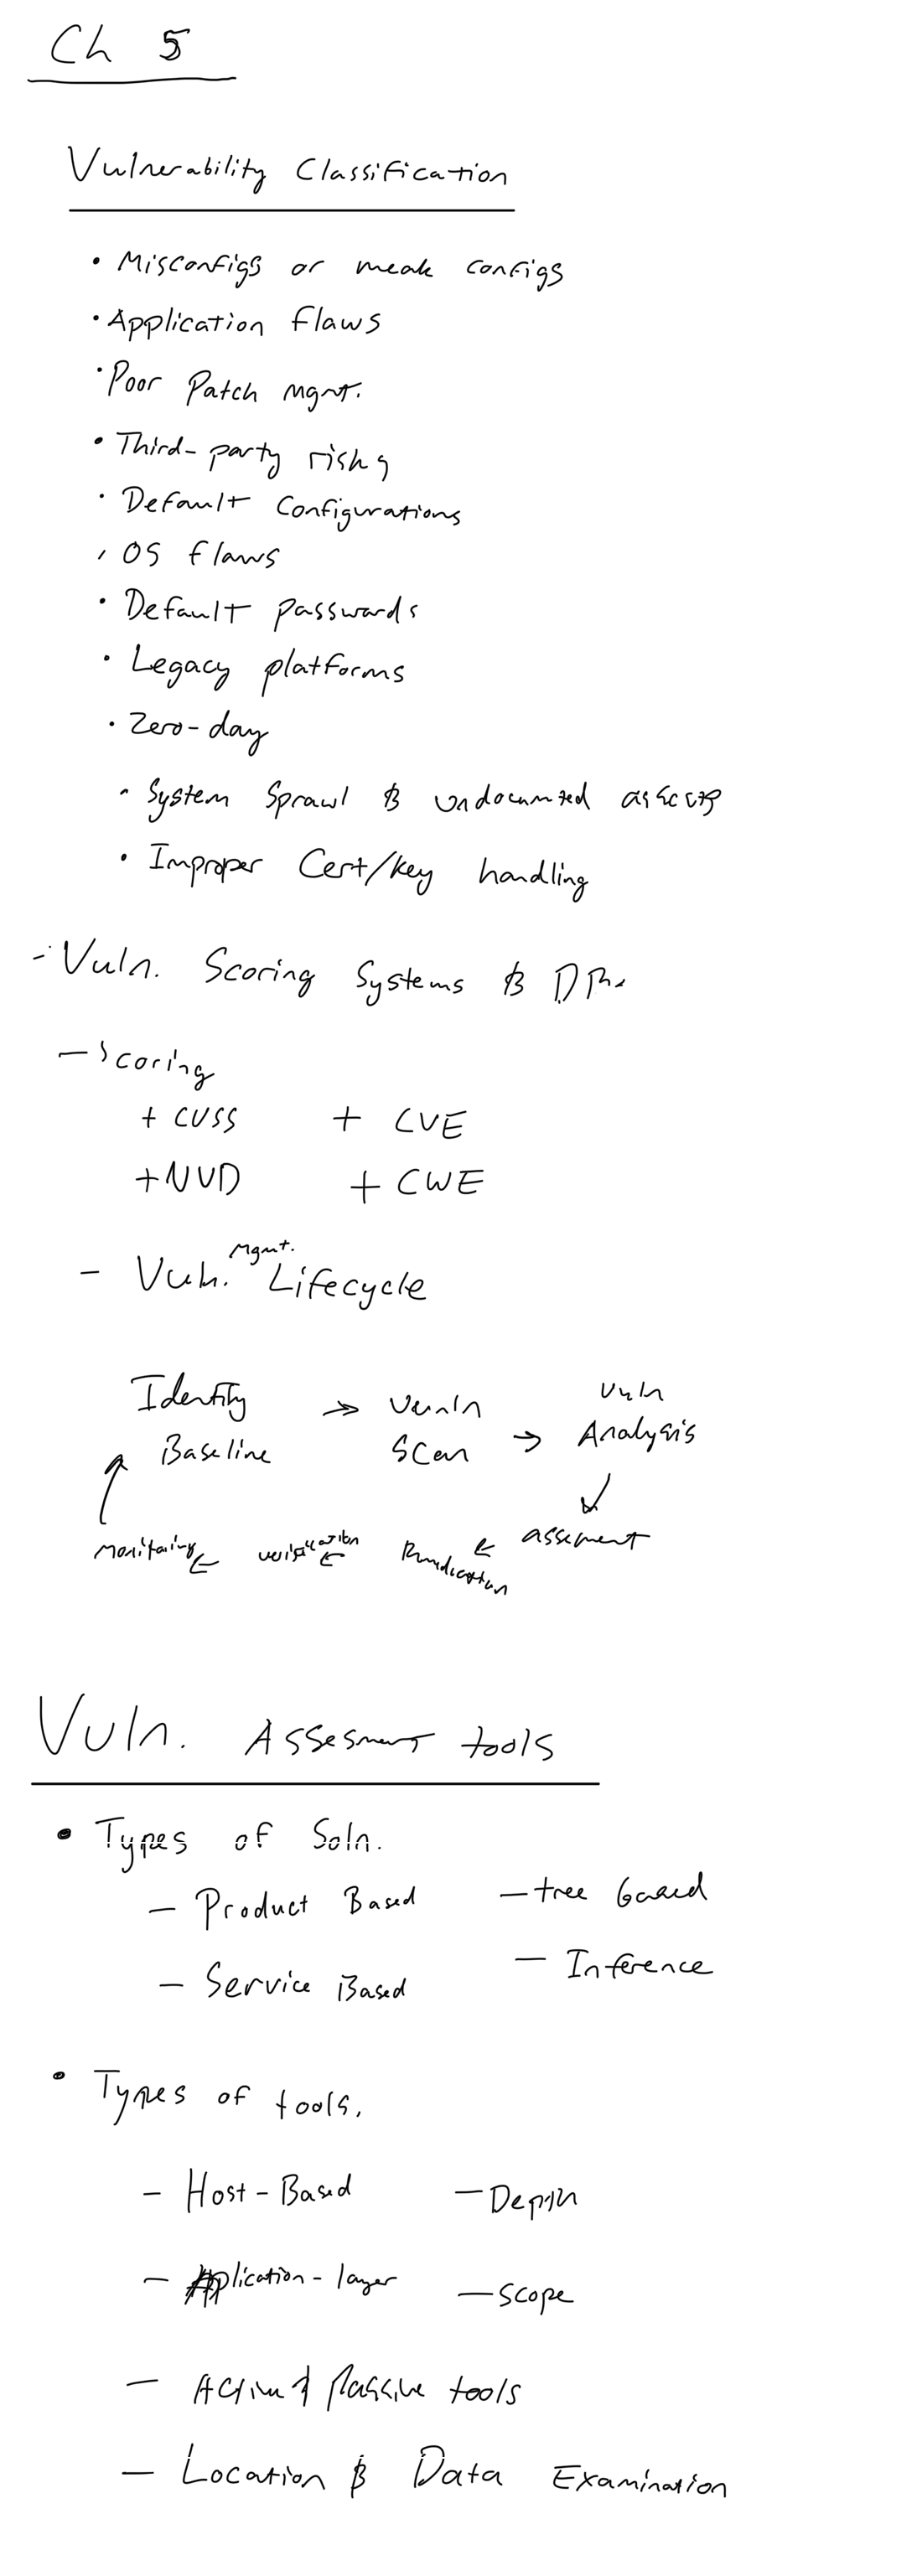 Ch 5
Vulnerability Classification
• Misconfigs or weak configs
• Application flaws
• Poor Patch Mgmt.
• Third-party risks
• Default Configurations
• OS flaws
• Default passwords
• Legacy platforms
• Zero-day
• System Sprawl & undocumnted assets
• Improper Cert/key handling
- Vuln. Scoring Systems &
- Scoring
+ CVSS + CVE
+ NVD + CWE
- Vuln. Mgmt. Lifecycle
Identify Baseline → Scan → Vuln Analysis
Monitoring ← verification ← ← assesment
Vuln. Assesment tools
• Types of Soln.
- Product Based - tree based
- Service Based - Inference
• Types of tools.
- Host-Based - Depth
- Application-layer - scope
- Active & Passive tools
- Location & Data Examination